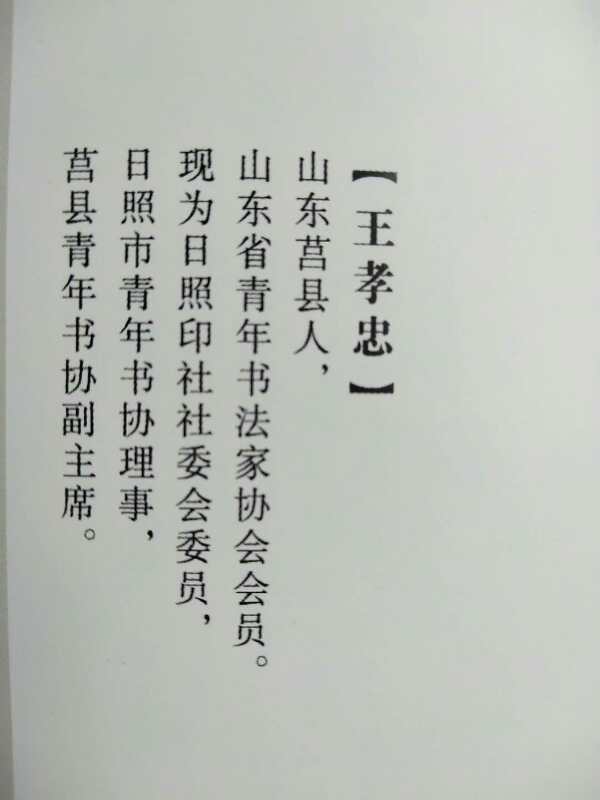 【王孝忠】
山东莒县人，
山东省青年书法家协会会员。
现为日照印社社委会委员，
日照市青年书协理事，
莒县青年书协副主席。